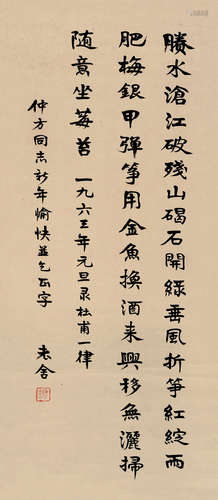 賸水滄江破殘山碣石開綠垂風折笋紅綻雨
肥梅銀甲彈箏用金魚換酒来興移無灑掃
随意坐莓苔 一九六三年元旦录杜甫一律
仲方同志新年愉快並乞正字
老舍